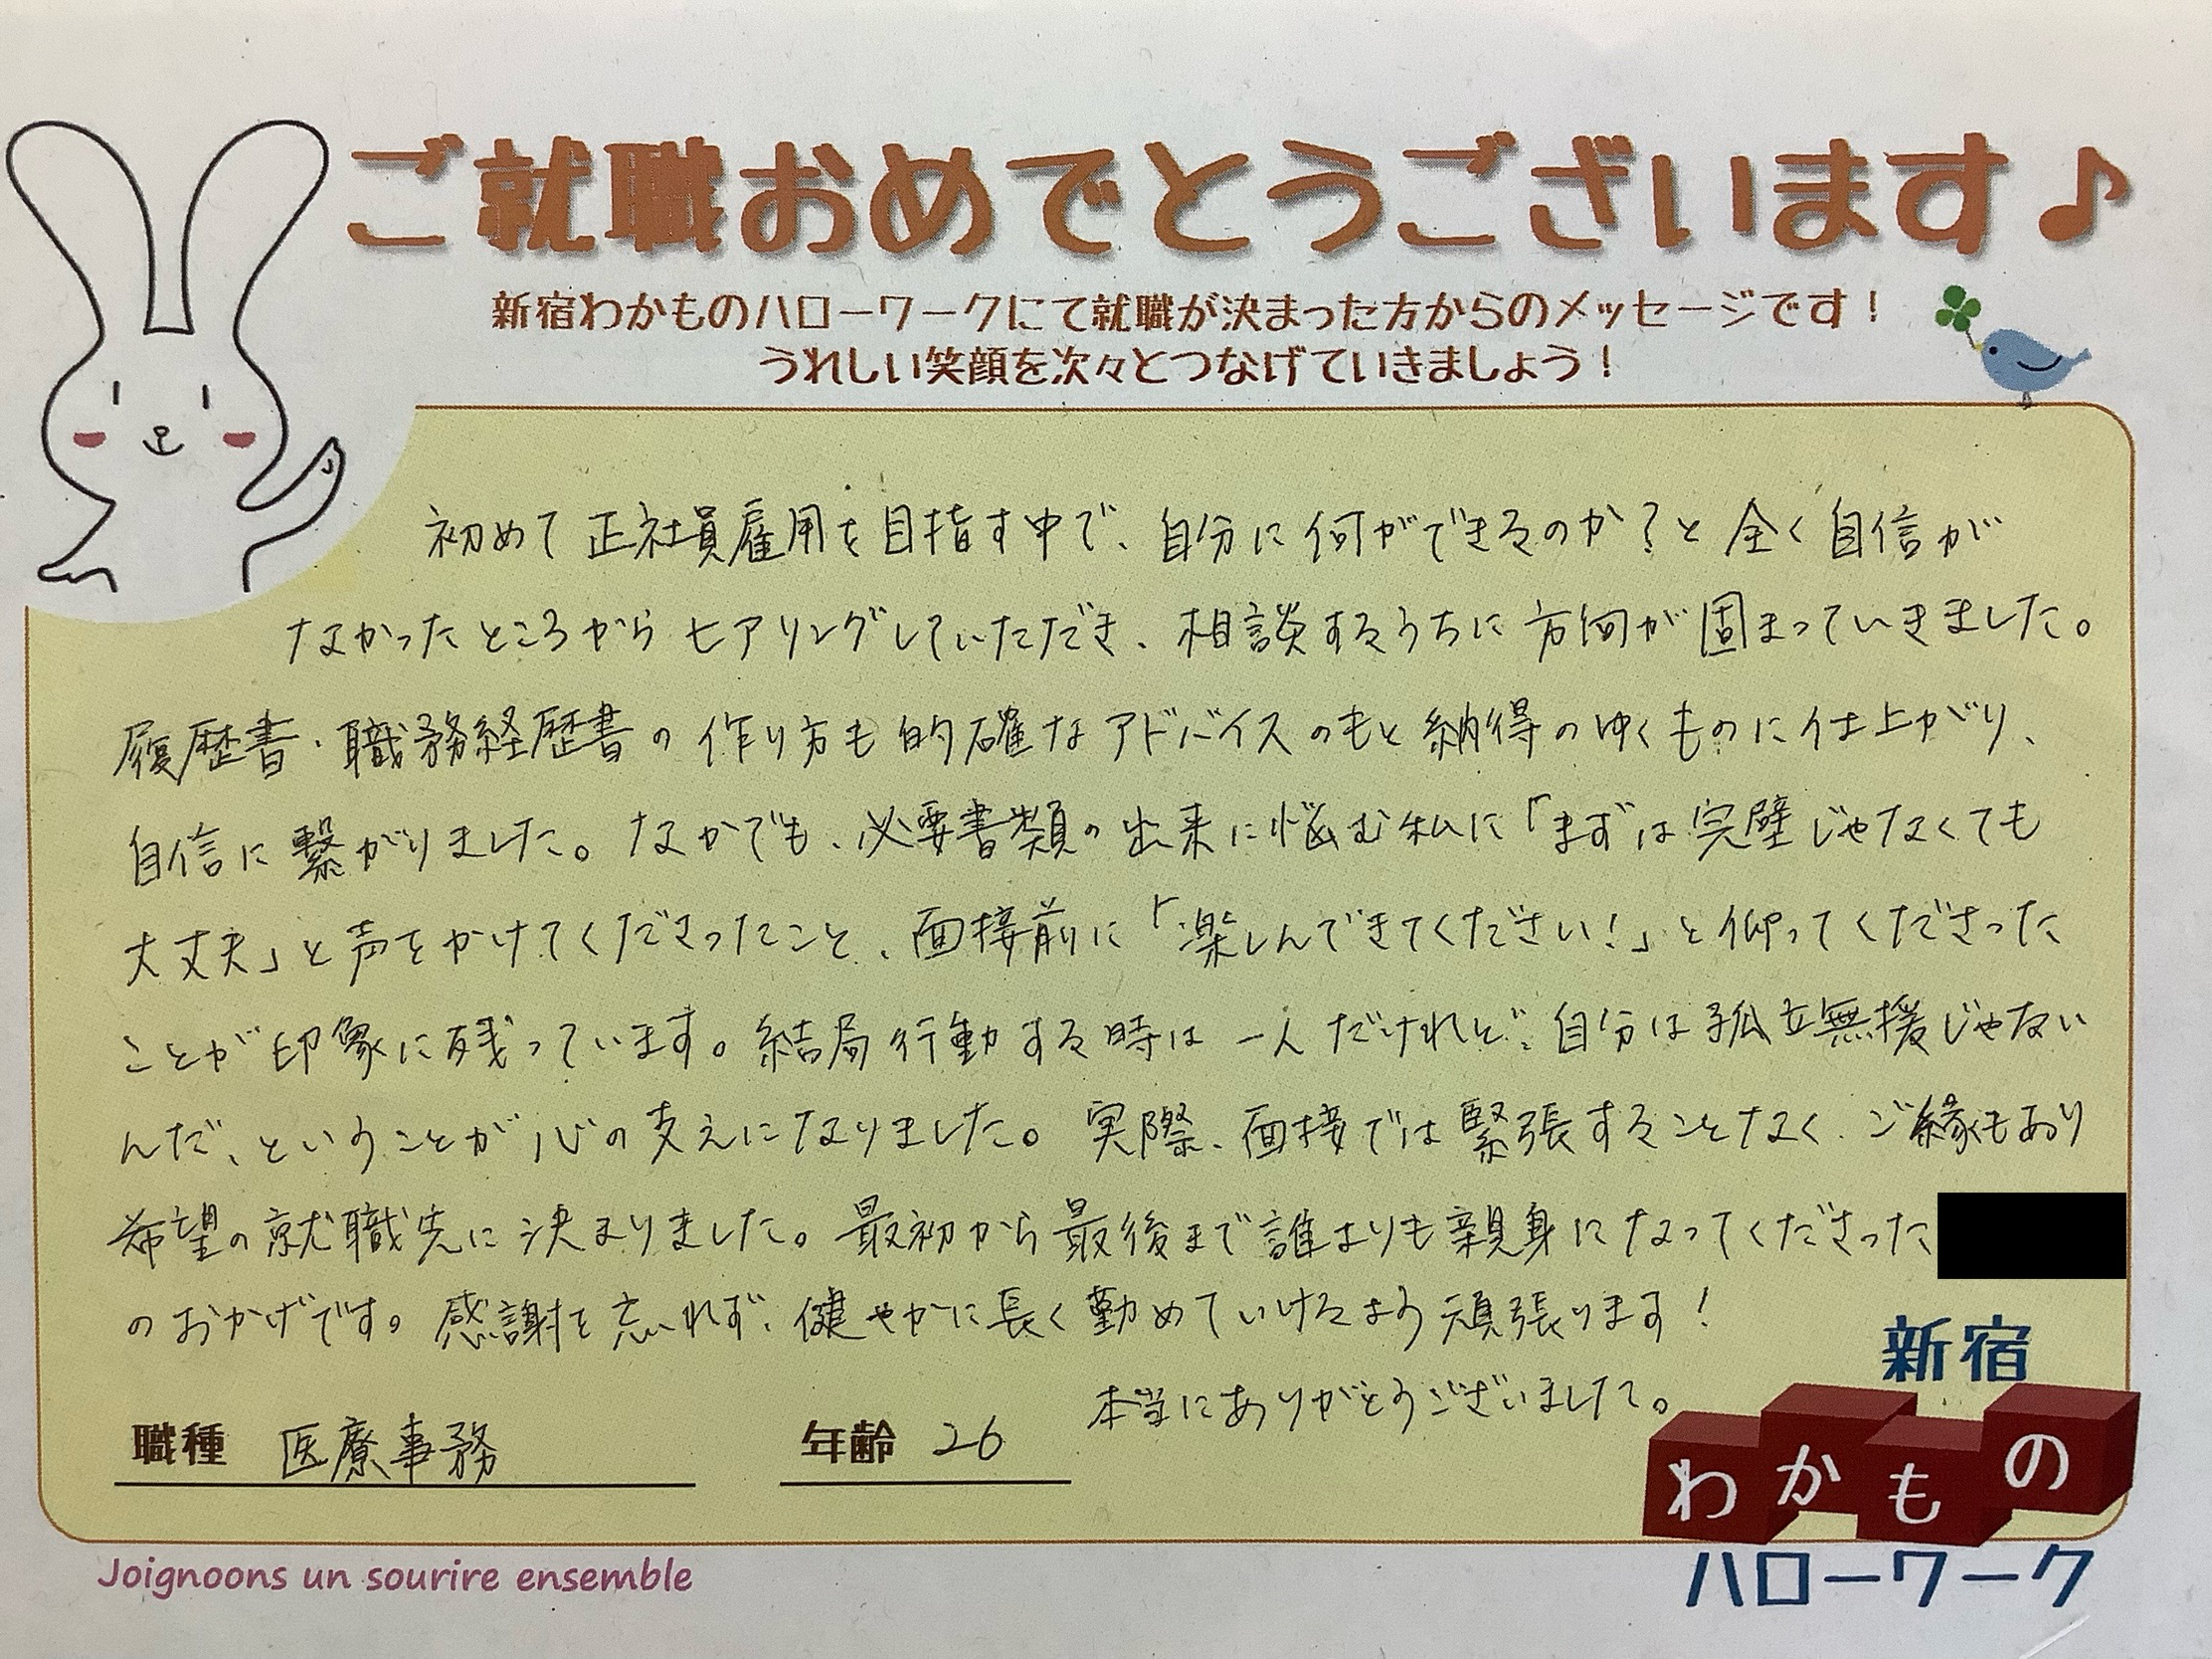 ご就職おめでとうございます♪
新宿わかものハローワークにて就職が決まった方からのメッセージです！
うれしい笑顔を次々とつなげていきましょう！
初めて正社員雇用を目指す中で、自分に何ができるのか？と全く自信が
なかったところからヒアリングしていただき、相談するうちに方向が固まっていきました。
履歴書・職務経歴書の作り方も的確なアドバイスのもと納得のゆくものに仕上がり、
自信に繋がりました。なかでも、必要書類の出来に悩む私に「まずは完璧じゃなくても
大丈夫」と声をかけてくださったこと、面接前に「楽しんできてください！」と仰ってくださった
ことが印象に残っています。結局行動する時は一人だけれど、自分は孤立無援じゃない
んだ、ということが心の支えになりました。実際、面接では緊張することなく、ご縁もあり
希望の就職先に決まりました。最初から最後まで誰よりも親身になってくださった
のおかげです。感謝を忘れず、健やかに長く勤めていけるよう頑張ります！
本当にありがとうございました。
職種 医療事務
年齢 26
新宿
わかもの
ハローワーク
Joignoons un sourire ensemble